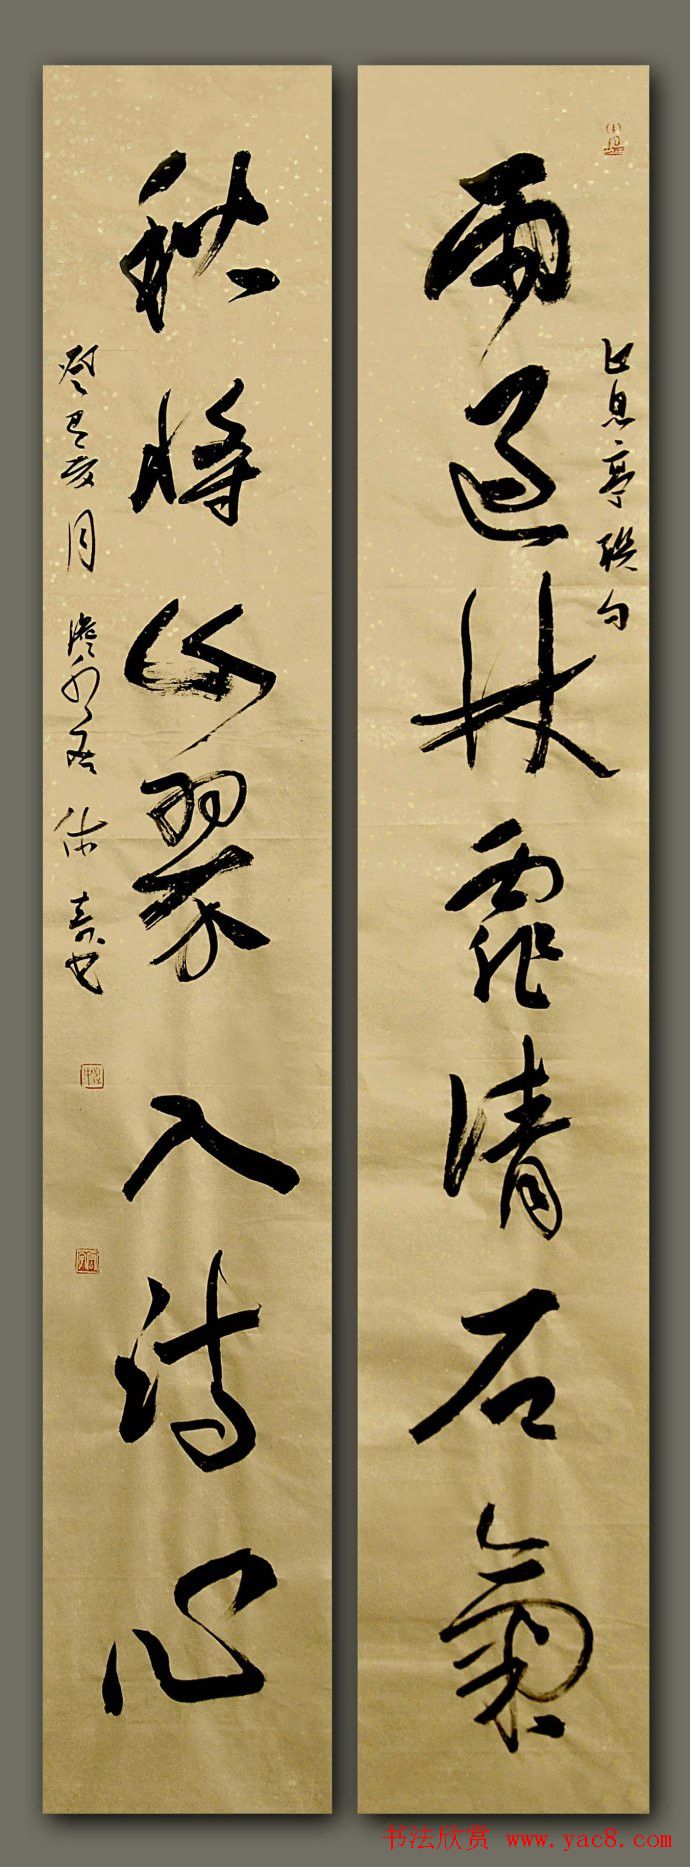 雨过林霏清石气
止息亭联句
秋将山翠入诗心
癸巳亥月
书法欣赏 www.yac8.com